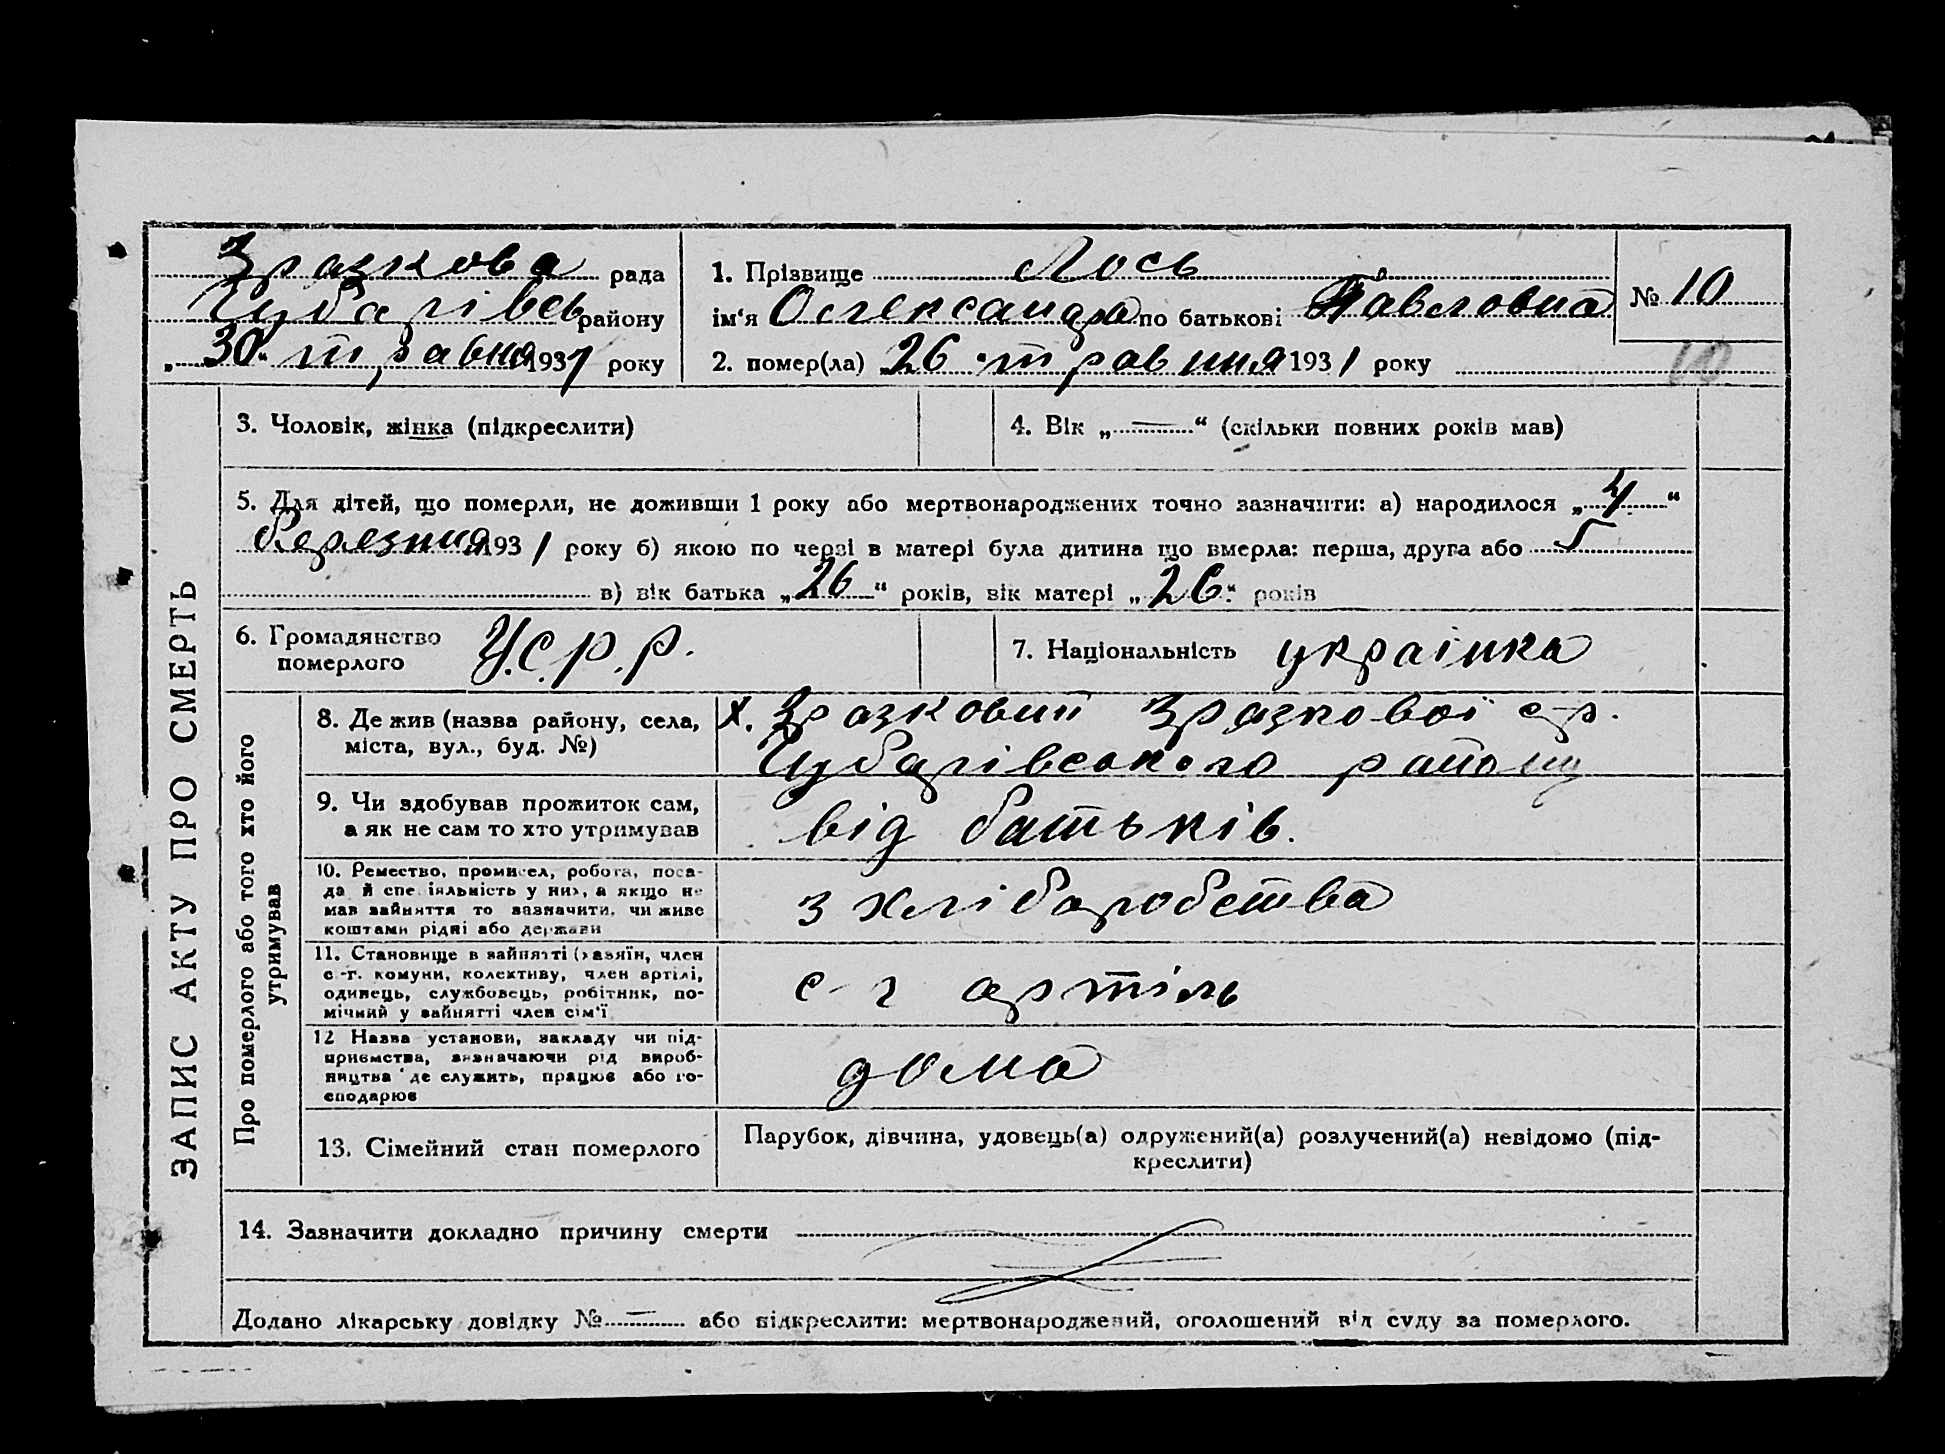 Зразкова рада
Чубарівсь району
„30“ травня 1931 року
1. Прізвище Лось
ім‘я Олександра по батькові Павловна
2. помер(ла) „26“ травння 1931 року
№ 10
10
3. Чоловік, жінка (підкреслити)
4. Вік „—“ (скільки повних років мав)
5. Для дітей, що померли, не доживши 1 року або мертвонароджених точно зазначити: а) народилося „4“
березння 1931 року б) якою по черзі в матері була дитина що вмерла: перша, друга або 5
в) вік батька „26“ років, вік матері „26“ років
6. Громадянство
померлого
У.С.Р.Р.
7. Національність українка
ЗАПИС АКТУ ПРО СМЕРТЬ
Про померлого або того хто його
утримував
8. Де жив (назва району, села,
міста, вул., буд. №)
х. Зразковий Зразкової с.р.
Чубарівського району
9. Чи здобував прожиток сам,
а як не сам то хто утримував
від батьків.
10. Ремество, промисел, робота, поса-
да й спеціяльність у них, а якщо не
мав зайняття то зазначити, чи живе
коштами рідні або держави
з хліборобства
11. Становище в зайнятті (хазяїн, член
с.-г. комуни, колективу, член артілі,
одинець, службовець, робітник, по-
мічний у зайнятті член сім‘ї
с-г артіль
12 Назва установи, закладу чи під-
приємства, зазначаючи рід вироб-
ництва де служить, працює або го-
сподарює
дома
13. Сімейний стан померлого
Парубок, дівчина, удовець(а) одружений(а) розлучений(а) невідомо (під-
креслити)
14. Зазначити докладно причину смерти
Додано лікарську довідку № — або підкреслити: мертвонароджений, оголошений від суду за померлого.